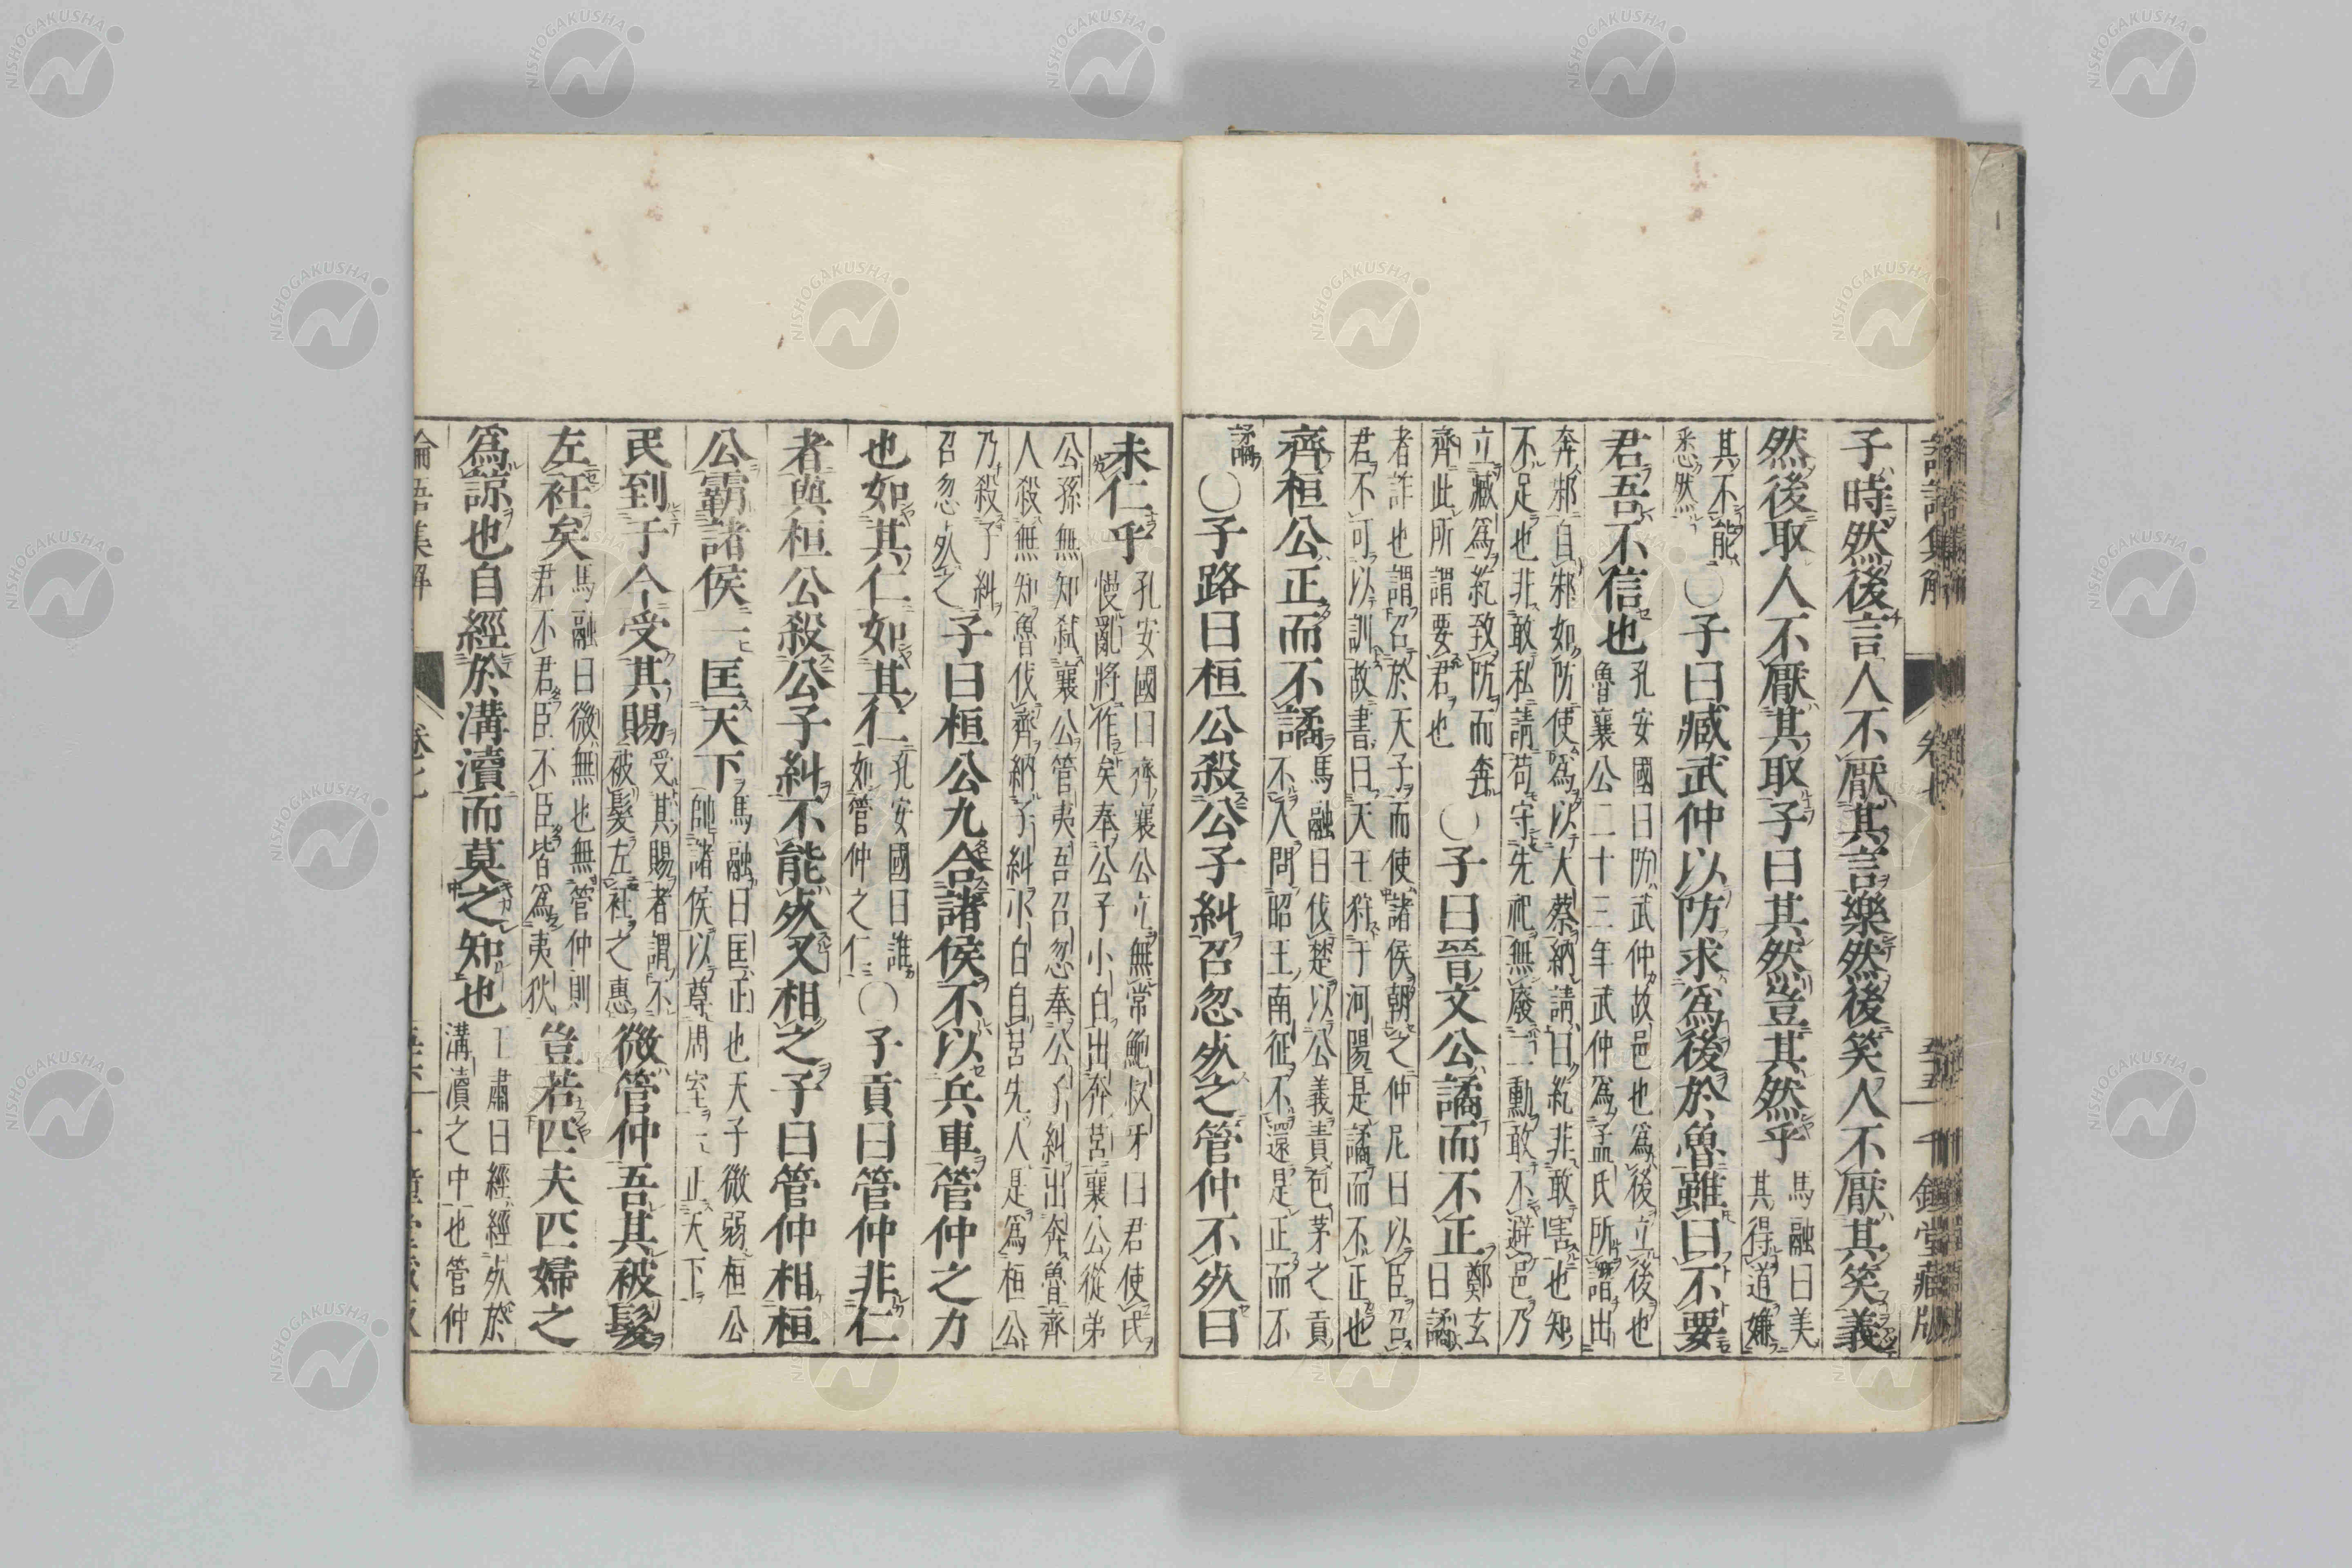 子時然後言人不厭其言樂然後笑人不厭其笑義
然後取人不厭其取子曰其然豈其然乎馬融曰美其得道嫌
其不能悉然〇子曰臧武仲以防求爲後於魯雖曰不要
君吾不信也孔安國曰防武仲故邑也爲後立後也魯襄公二十三年武仲爲孟氏所譖出
奔邾自邾如防使爲以大蔡納請曰紇非敢害也知不足也非敢私請苟守先祀無廢二勳敢不避邑乃
立臧爲紇致防而奔齊此所謂要君也〇子曰晉文公譎而不正鄭玄曰譎
者詐也謂召於天子而使諸侯朝之仲尼曰以臣召君不可以訓故書曰天王狩于河陽是譎而不正也
齊桓公正而不譎馬融曰伐楚以公義責苞茅之貢不入問昭王南征不還是正而不
譎〇子路曰桓公殺公子糾召忽死之管仲不死曰
未仁乎孔安國曰齊襄公立無常鮑叔牙曰君使民慢亂將作矣奉公子小白出奔莒襄公從弟
公孫無知弑襄公管夷吾召忽奉公子糾出奔魯齊人殺無知魯伐齊納子糾小白自莒先入是爲桓公
乃殺子糾召忽死之子曰桓公九合諸侯不以兵車管仲之力
也如其仁如其仁孔安國曰誰如管仲之仁〇子貢曰管仲非仁
者與桓公殺公子糾不能死又相之子曰管仲相桓
公霸諸侯一匡天下馬融曰匡正也天子微弱桓公帥諸侯以尊周室一正天下
民到于今受其賜受其賜者謂不被髮左衽之惠微管仲吾其被髮
左衽矣馬融曰微無也無管仲則君不君臣不臣皆爲夷狄豈若匹夫匹婦之
爲諒也自經於溝瀆而莫之知也王肅曰經經死於溝瀆之中也管仲